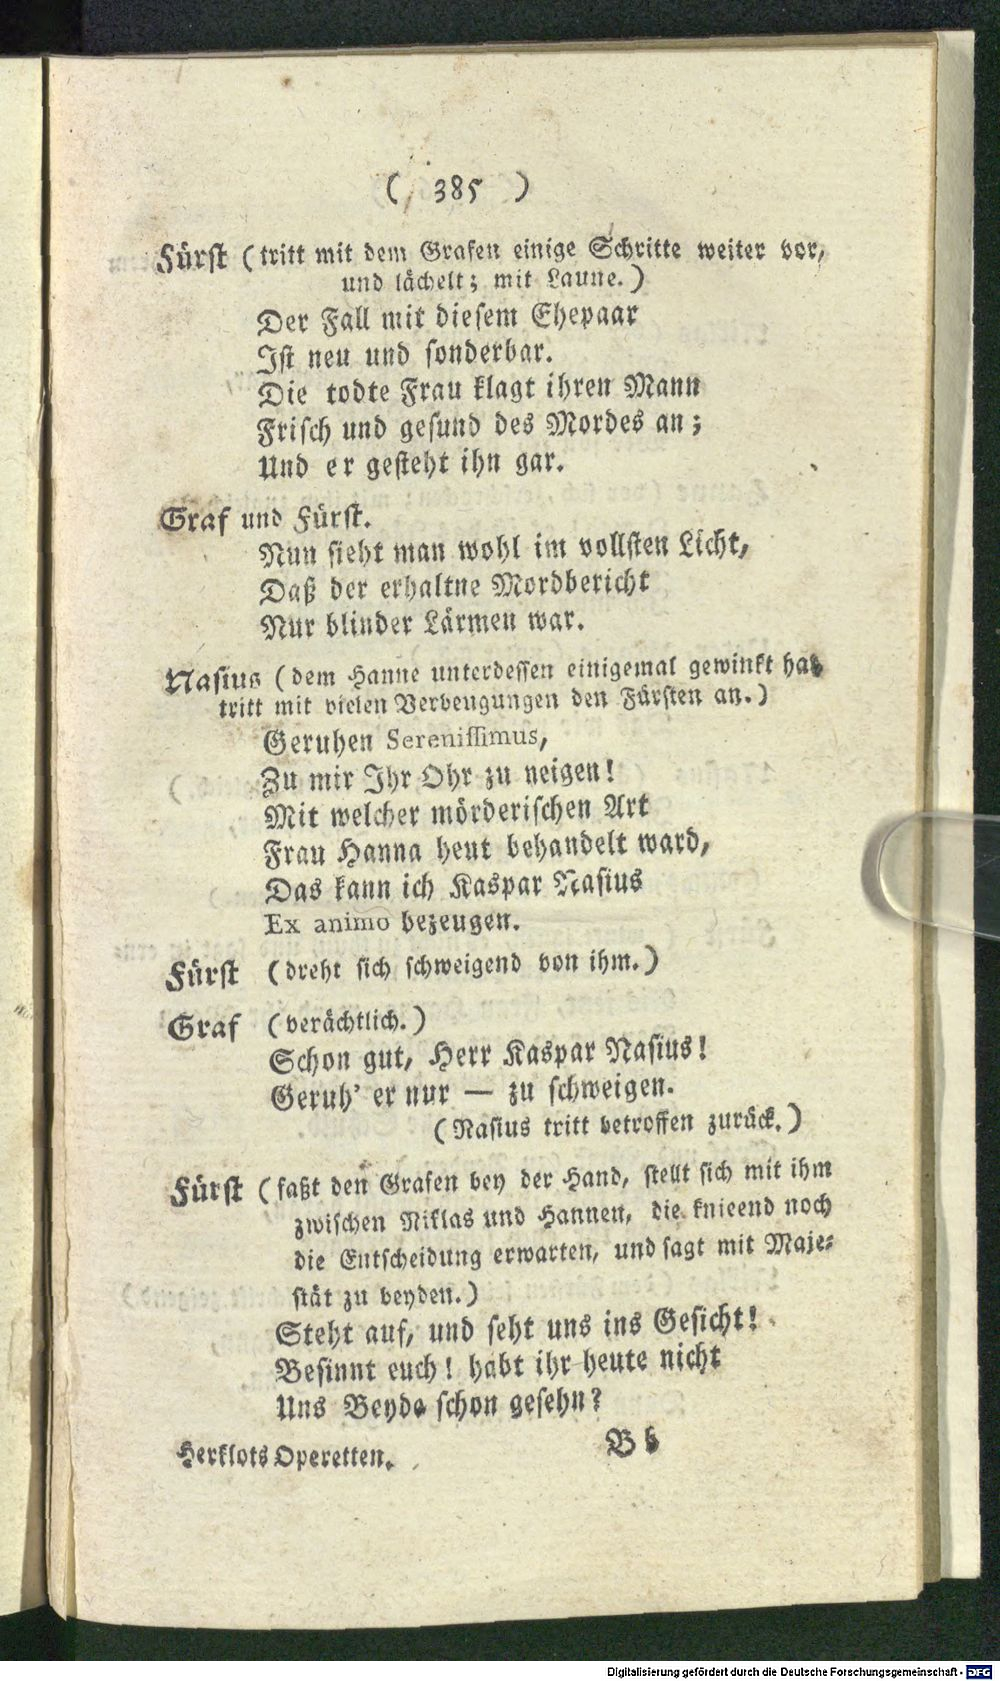 ( 385 )
Fürst (tritt mit dem Grafen einige Schritte weiter vor,
und lächelt; mit Laune.)
Der Fall mit diesem Ehepaar
Ist neu und sonderbar.
Die todte Frau klagt ihren Mann
Frisch und gesund des Mordes an;
Und er gesteht ihn gar.
Graf und Fürst.
Nun sieht man wohl im vollsten Licht,
Daß der erhaltne Mordbericht
Nur blinder Lärmen war.
Nasius (dem Hanne unterdessen einigemal gewinkt hat
tritt mit vielen Verbeugungen den Fürsten an.)
Geruhen Serenissimus,
Zu mir Ihr Ohr zu neigen!
Mit welcher mörderischen Art
Frau Hanna heut behandelt ward,
Das kann ich Kaspar Nasius
Ex animo bezeugen.
Fürst (dreht sich schweigend von ihm.)
Graf (verächtlich.)
Schon gut, Herr Kaspar Nasius!
Geruh' er nur — zu schweigen.
(Nasius tritt betroffen zurück.)
Fürst (faßt den Grafen bey der Hand, stellt sich mit ihm
zwischen Niklas und Hannen, die knieend noch
die Entscheidung erwarten, und sagt mit Maje-
stät zu beyden.)
Steht auf, und seht uns ins Gesicht!
Besinnt euch! habt ihr heute nicht
Uns Beyde schon gesehn?
Herklots Operetten. B b
Digitalisierung gefördert durch die Deutsche Forschungsgemeinschaft - DFG